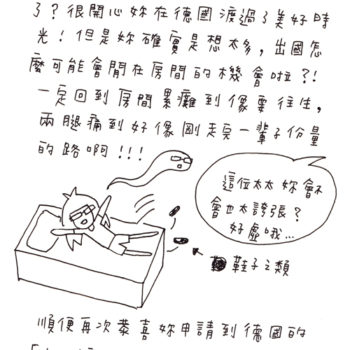 了？很開心妳在德國渡過了美好時
光！但是妳確實是想太多，出國怎
麼可能會閒在房間的機會啦？！
一定回到房間累癱到像要往生，
兩腿痛到好像剛走完一輩子份量
的路啊！！！
這位太太妳會不
會也太誇張？
好虛哦…
鞋子之類
順便再次恭喜妳申請到德國的